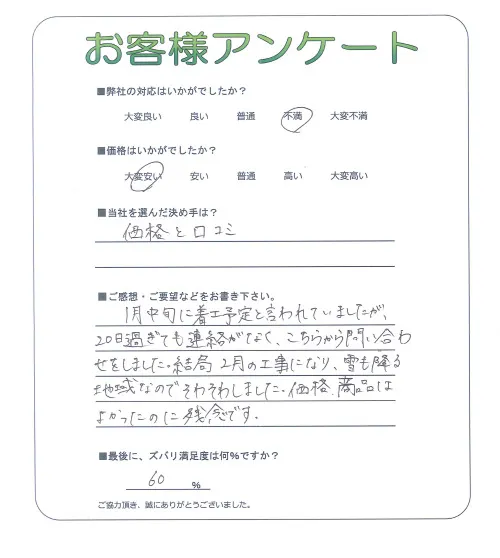 お客様アンケート
■弊社の対応はいかがでしたか？
大変良い 良い 普通 不満 大変不満
■価格はいかがでしたか？
大変安い 安い 普通 高い 大変高い
■当社を選んだ決め手は？
価格と口コミ
■ご感想・ご要望などをお書き下さい。
1月中旬に着工予定と言われていましたが、
20日過ぎても連絡がなく、こちらから問い合わ
せをしました。結局 2月の工事になり、雪も降る
地域なのでそわそわしました。価格、商品は
よかったのに残念です。
■最後に、ズバリ満足度は何%ですか？
60 %
ご協力頂き、誠にありがとうございました。